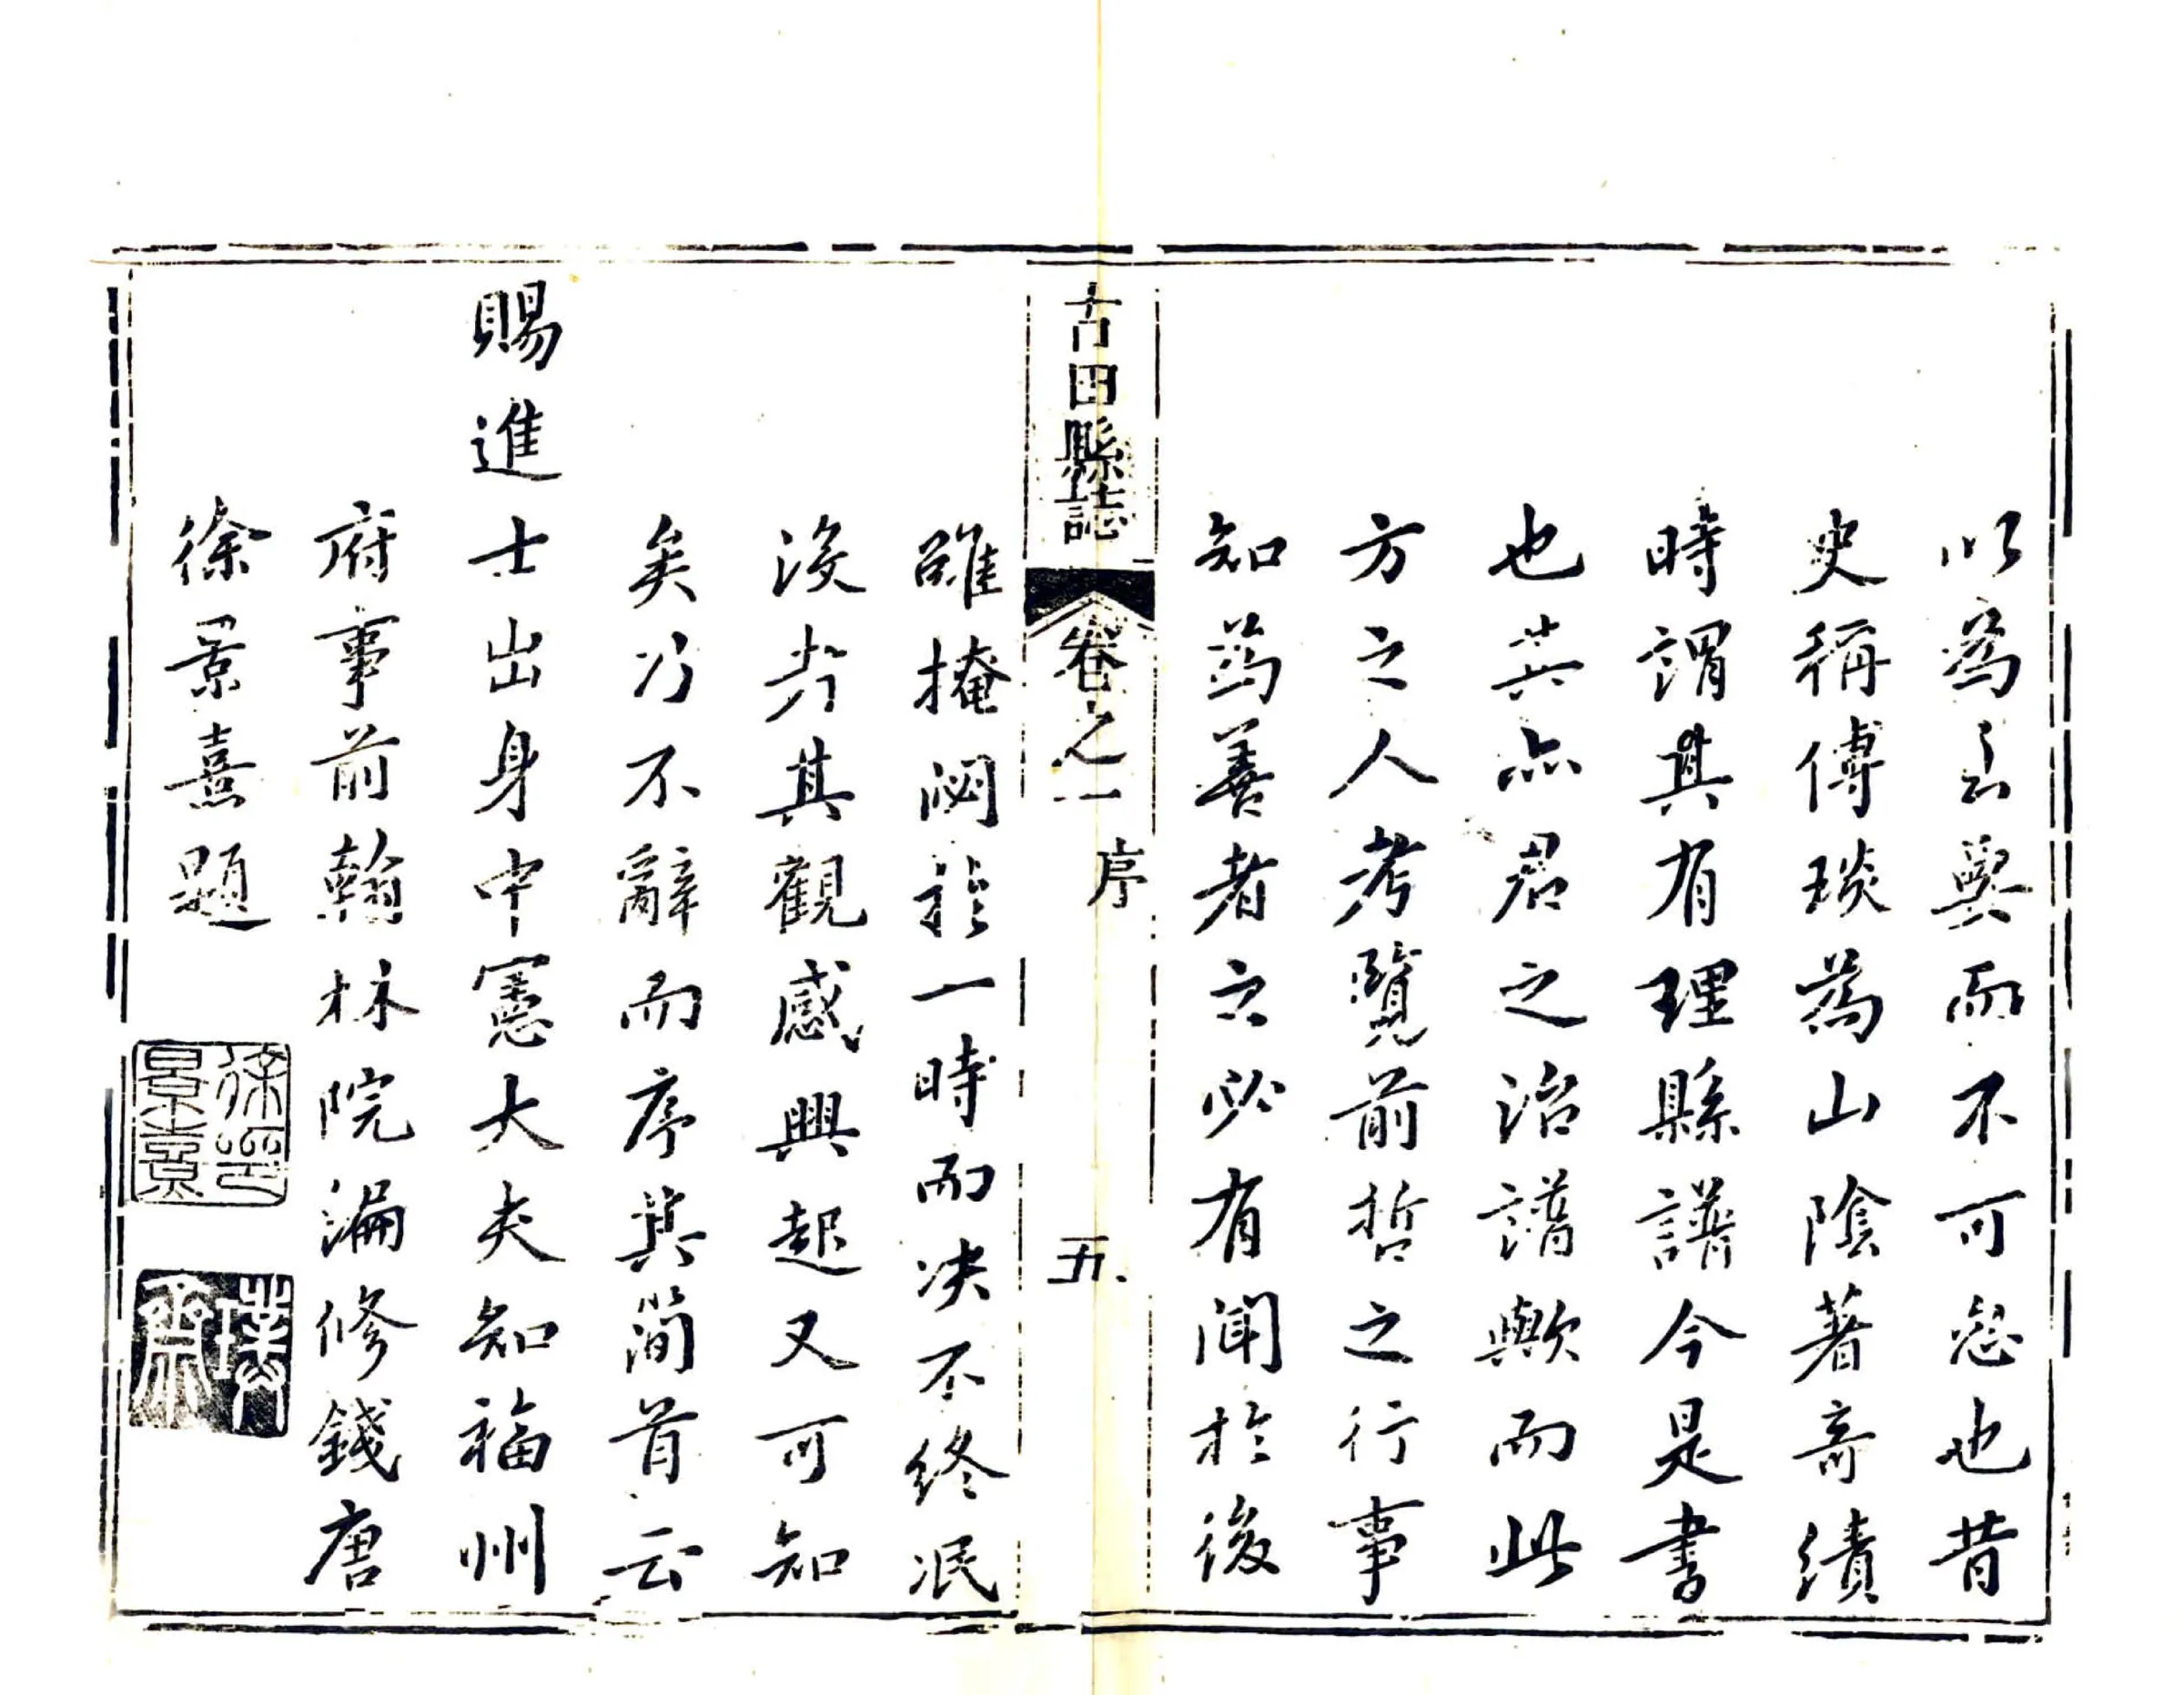 以為玄與而不可忽也昔
史稱傅琰為山陰著奇績
時謂其有理縣譜今是書
也其亦君之治譜歟而此
方之人考覽前哲之行事
知為善者之必有聞於後
古田縣誌
卷之一
序
五
雖掩閟於一時而决不終泯
没於其觀感興起又可知
矣乃不辭而序其簡首云
賜進士出身中憲大夫知福州
府事前翰林院編修錢唐
徐景熹題
徐景熹印
璞齋